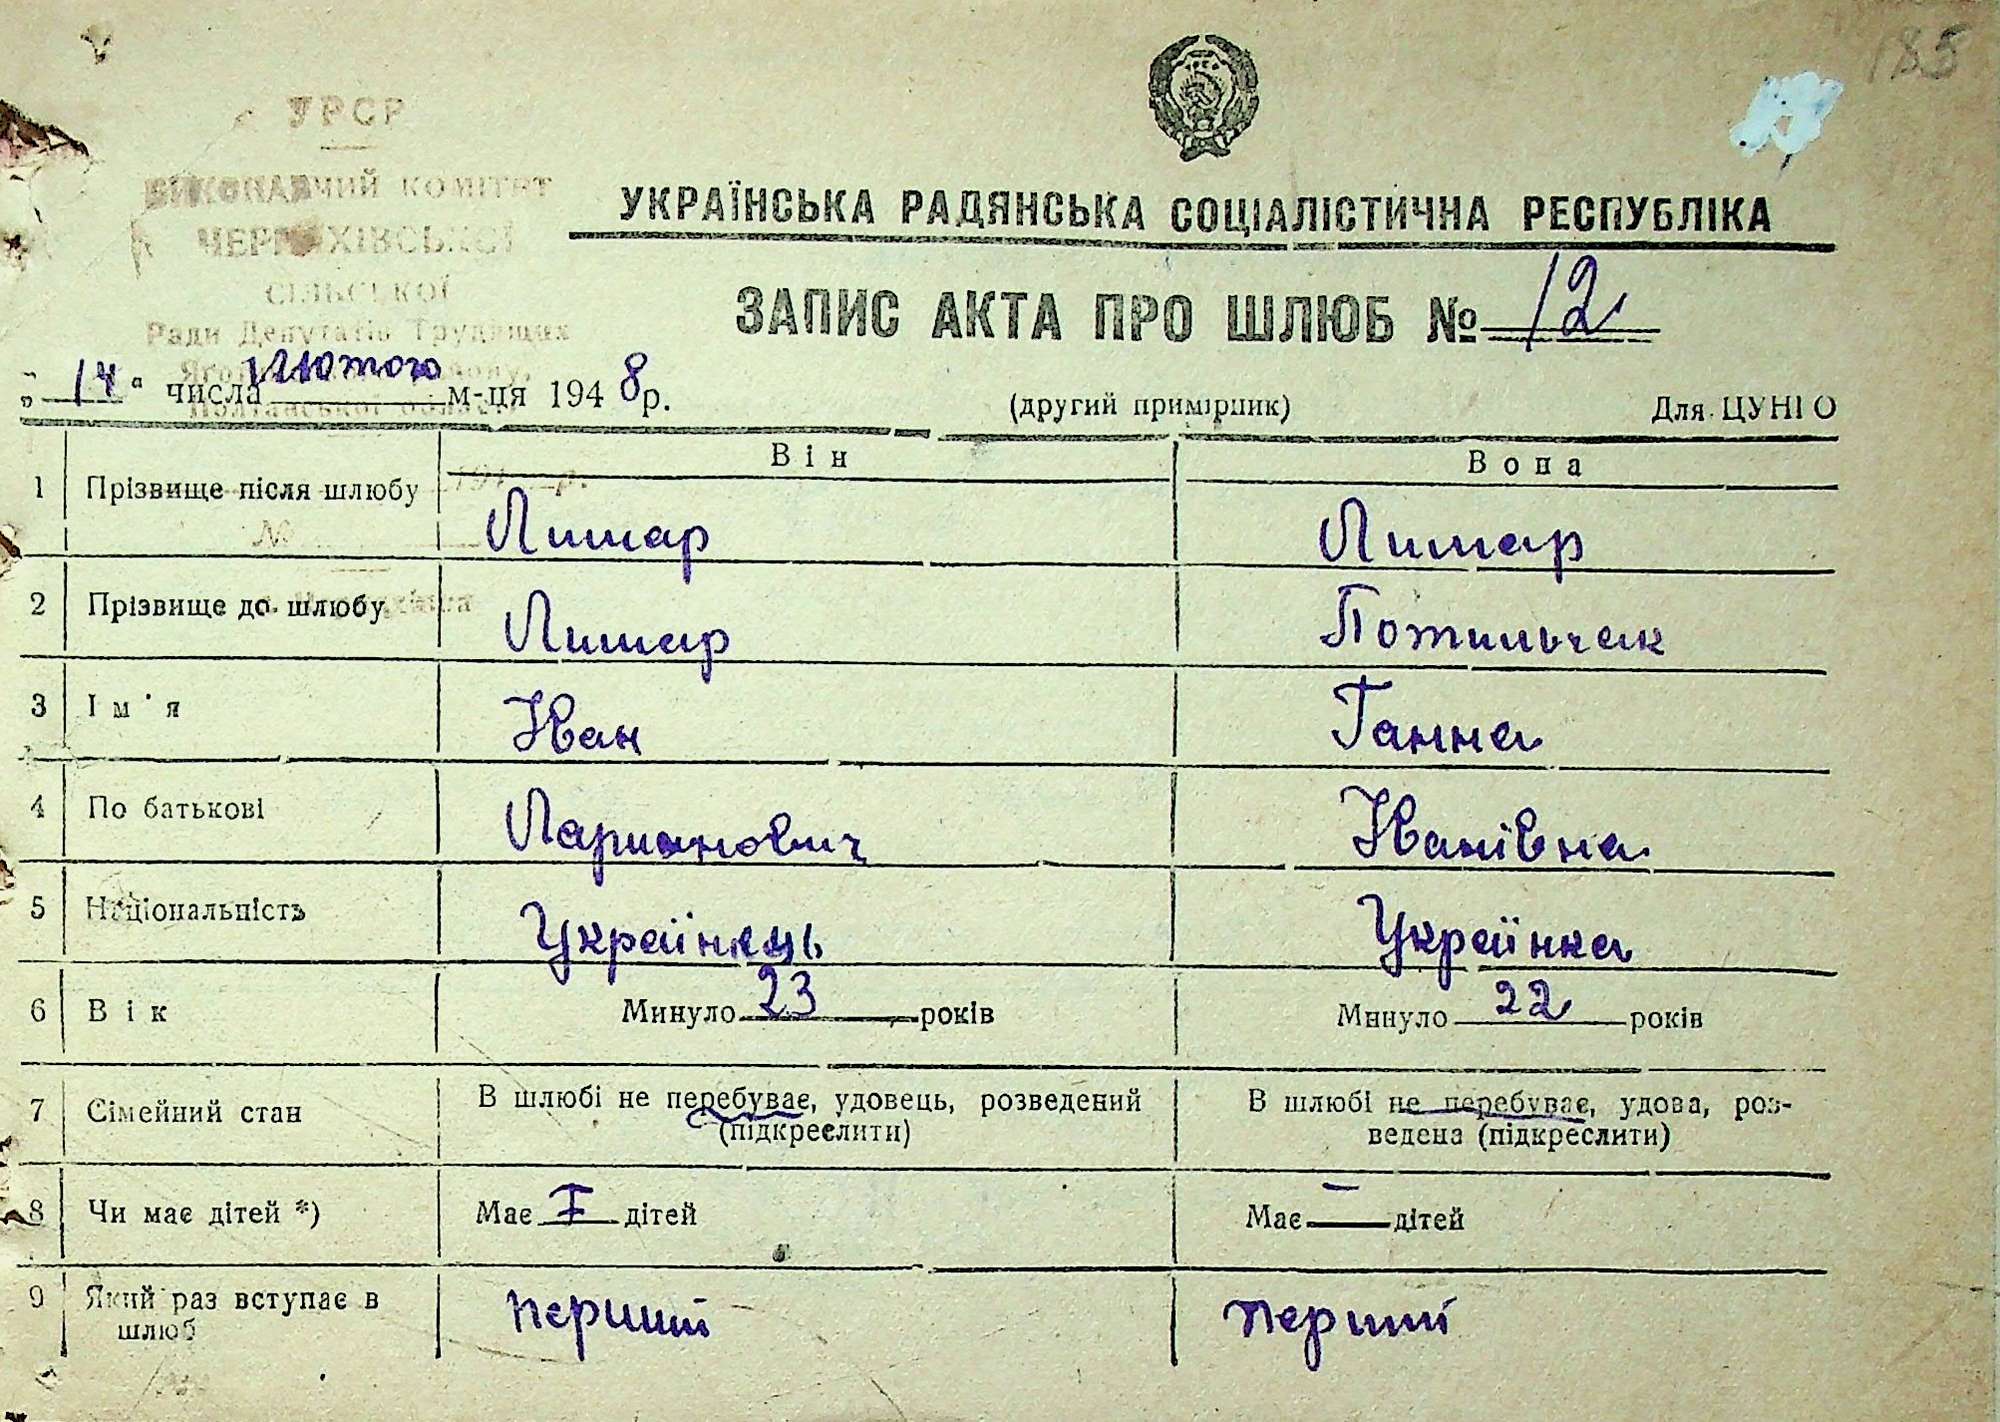 185
УРСР
ВИКОНАВЧИЙ КОМІТЕТ
СІЛЬСЬКОЇ
Ради Депутатів Трудящих
Полтавської області
УКРАЇНСЬКА РАДЯНСЬКА СОЦІАЛІСТИЧНА РЕСПУБЛІКА
ЗАПИС АКТА ПРО ШЛЮБ № 12
„14" числа Лютого м-ця 1948 р.
(другий примірник) Для ЦУНГО
Він Вона
1 Прізвище після шлюбу Лимар Лимар
№
2 Прізвище до шлюбу Лимар Потильчак
3 Ім'я Іван Ганна
4 По батькові Ларионович Іванівна
5 Національність Українець Українка
6 Вік Минуло 23 років Минуло 22 років
7 Сімейний стан В шлюбі не перебуває, удовець, розведений В шлюбі не перебуває, удова, роз-
(підкреслити) ведена (підкреслити)
8 Чи має дітей *) Має дітей Має — дітей
9 Який раз вступає в перший перший
шлюб